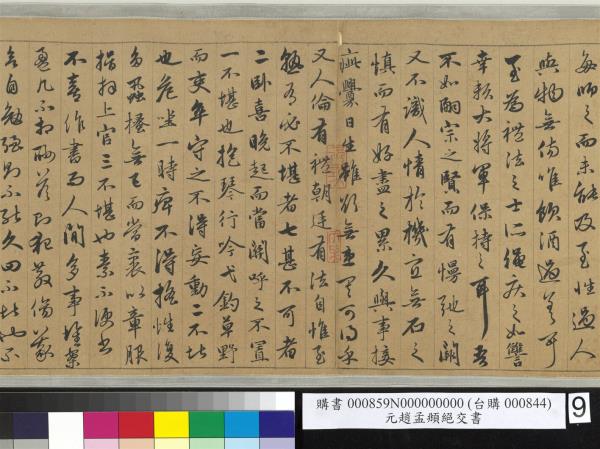 每師之而未能及至性過人
與物無傷唯飲酒過差耳
至為禮法之士所繩疾之如讎
幸賴大將軍保持之耳吾
不如嗣宗之賢而有慢弛之闕
又不識人情於機宜無石之
慎而有好盡之累久與事接
疵釁日生雖欲無患其可得乎
又人倫有禮朝廷有法自惟至
熟有必不堪者七甚不可者
二卧喜晚起而當關呼之不置
一不堪也抱琴行吟弋釣草野
而吏卒守之不得妄動二不堪
也危坐一時痺不得搖性復
多蝨搔無已而當裹以章服
揖拜上官三不堪也素不便書
不喜作書而人間多事堆案
盈几不相酬答則犯教傷義
欲自勉強則不能久四不堪也不
購書 000859N000000000 (台購 000844)
元趙孟頫絕交書
9